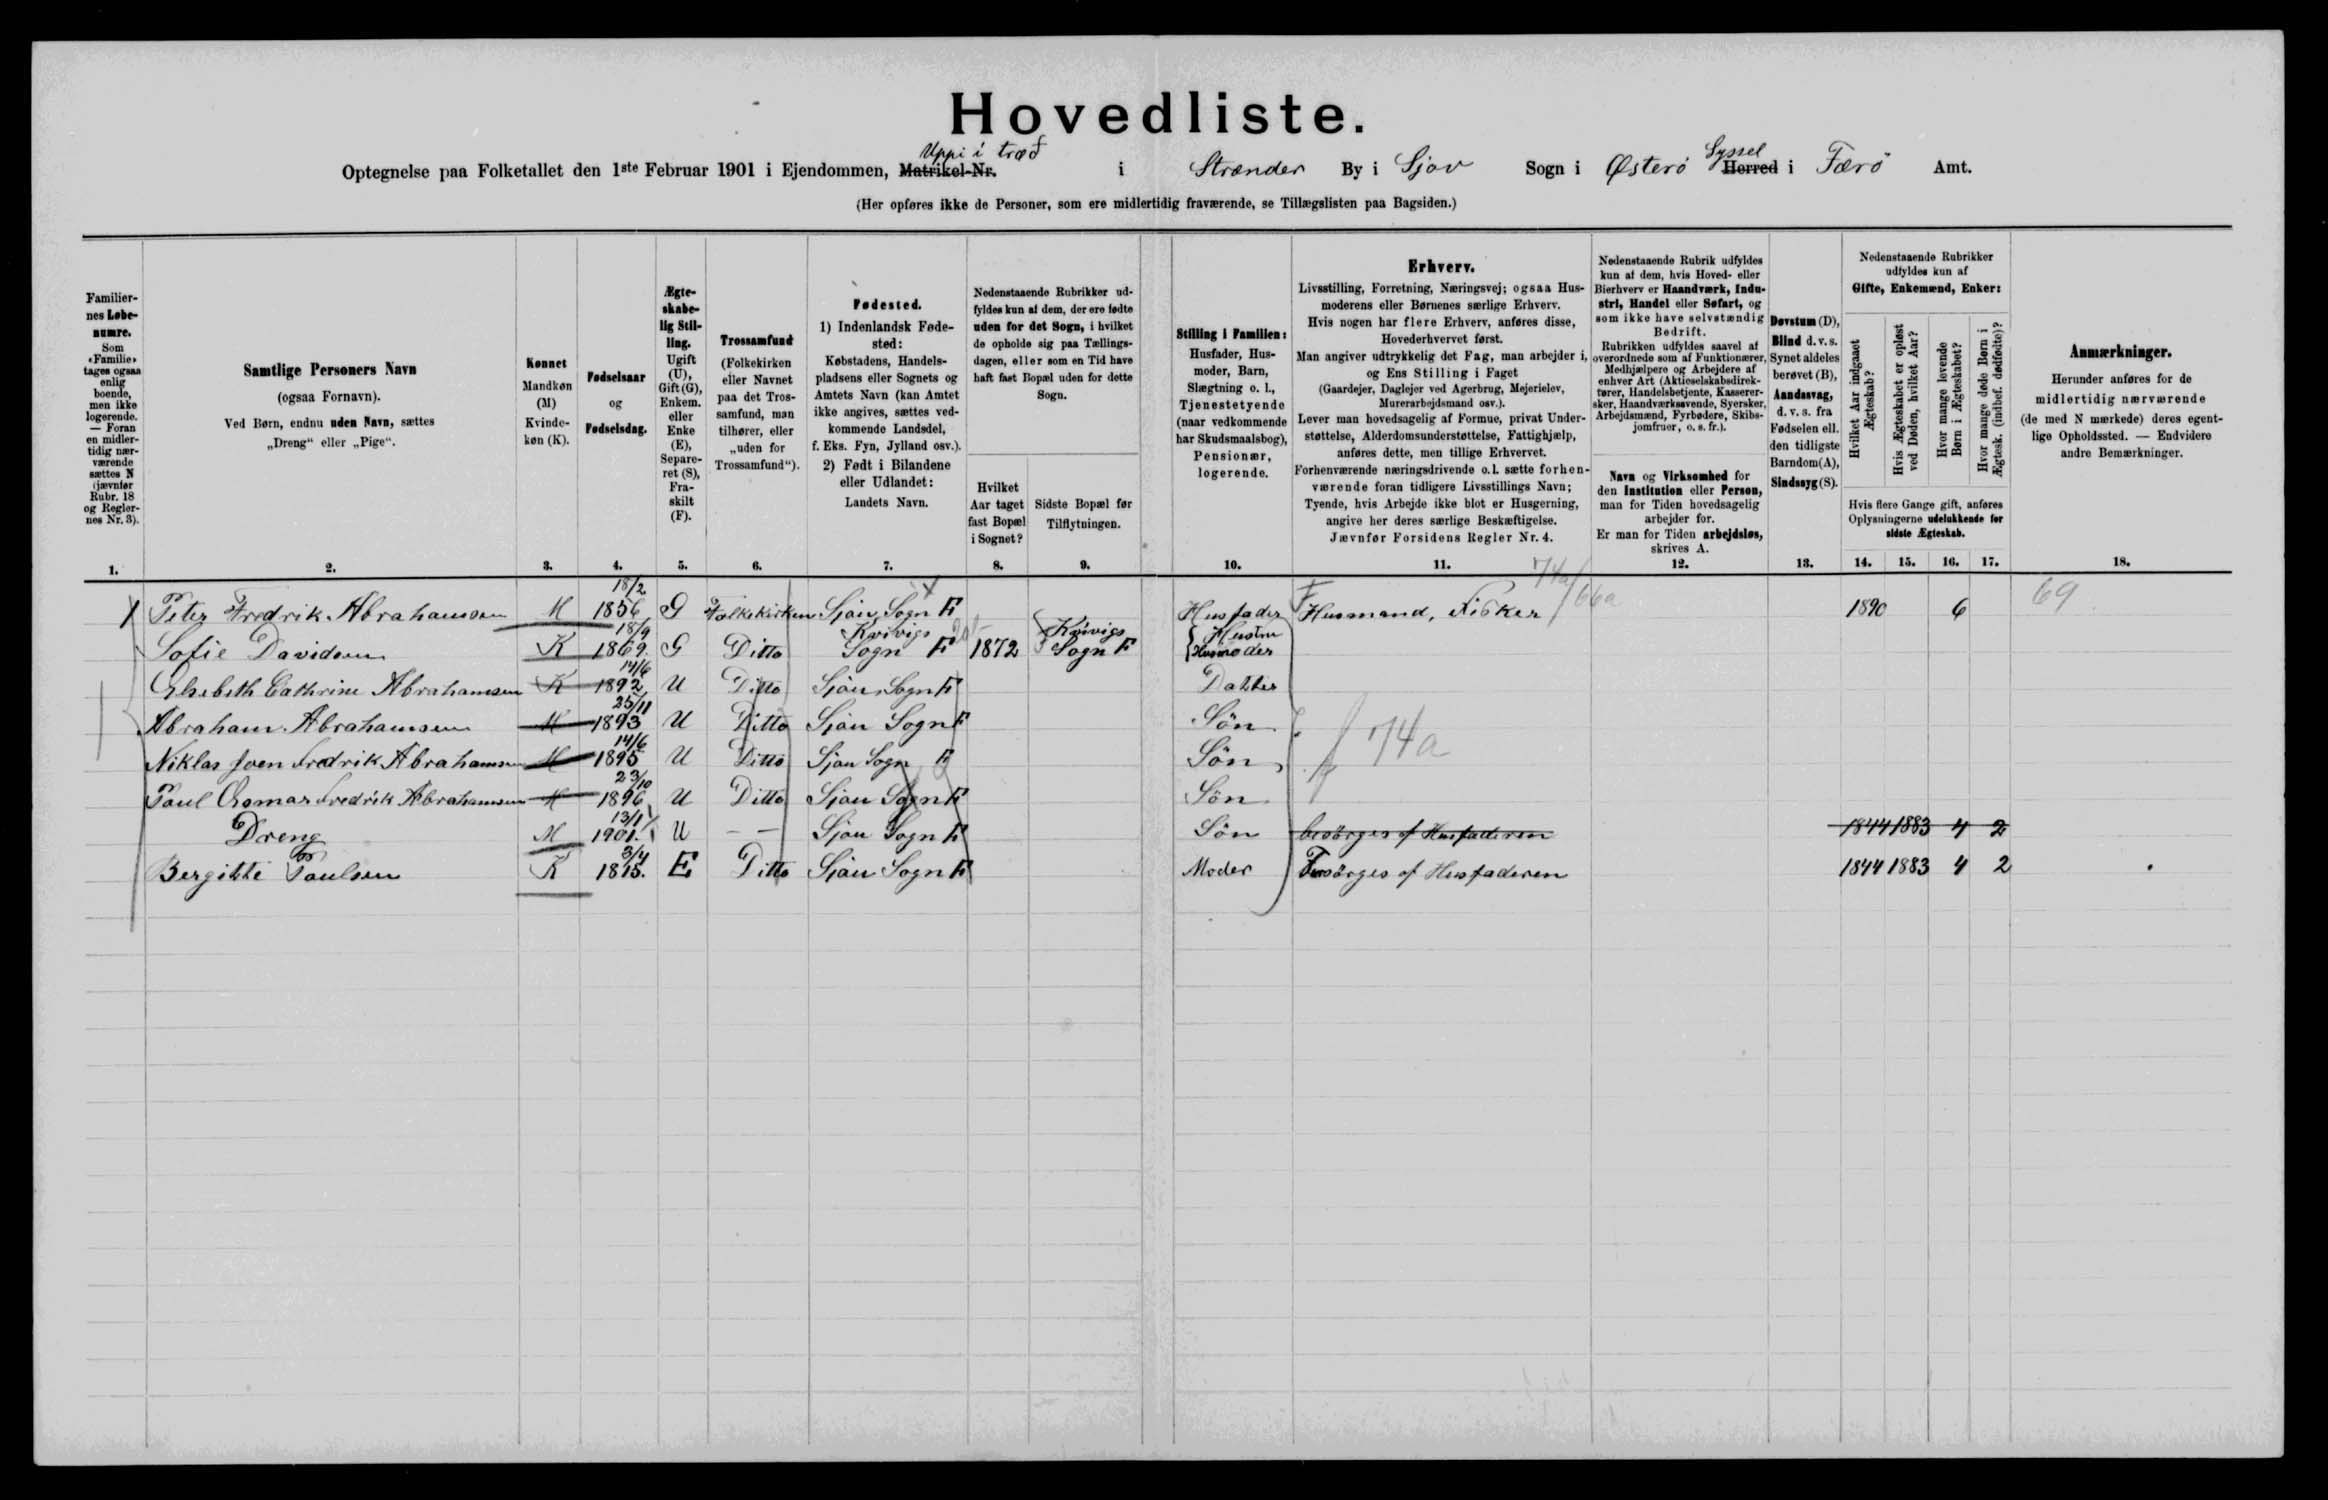 Hovedliste.
Optegnelse paa Folketallet den 1ste Februar 1901 i Ejendommen, Matrikel-Nr. Uppi i trød i Strænder By i Sjov Sogn i Østerö Herred Syssel i Færö Amt.
(Her opføres ikke de Personer, som ere midlertidig fraværende, se Tillægslisten paa Bagsiden.)
Familiernes Løbenumre. Som «Familie» tages ogsaa enlig boende, men ikke logerende. — Foran en midlertidig nærværende sættes N (jævnfør Rubr. 18 og Reglernes Nr. 3).
Samtlige Personers Navn (ogsaa Fornavn). Ved Børn, endnu uden Navn, sættes „Dreng“ eller „Pige“.
Kønnet Mandkøn (M) Kvindekøn (K).
Fødselsaar og Fødselsdag.
Ægteskabelig Stilling. Ugift (U), Gift (G), Enkem. eller Enke (E), Separeret (S), Fraskilt (F).
Trossamfund (Folkekirken eller Navnet paa det Trossamfund, man tilhører, eller „uden for Trossamfund“).
Fødested. 1) Indenlandsk Fødested: Købstadens, Handelspladsens eller Sognets og Amtets Navn (kan Amtet ikke angives, sættes vedkommende Landsdel, f. Eks. Fyn, Jylland osv.). 2) Født i Bilandene eller Udlandet: Landets Navn.
Nedenstaaende Rubrikker udfyldes kun af dem, der ere fødte uden for det Sogn, i hvilket de opholde sig paa Tællingsdagen, eller som en Tid have haft fast Bopæl uden for dette Sogn.
Hvilket Aar taget fast Bopæl i Sognet?
Sidste Bopæl før Tilflytningen.
Stilling i Familien: Husfader, Husmoder, Barn, Slægtning o. l., Tjenestetyende (naar vedkommende har Skudsmaalsbog), Pensionær, logerende.
Erhverv. Livsstilling, Forretning, Næringsvej; ogsaa Husmoderens eller Børnenes særlige Erhverv. Hvis nogen har flere Erhverv, anføres disse, Hovederhvervet først. Man angiver udtrykkelig det Fag, man arbejder i, og Ens Stilling i Faget (Gaardejer, Daglejer ved Agerbrug, Mejerielev, Murerarbejdsmand osv.). Lever man hovedsagelig af Formue, privat Understøttelse, Alderdomsunderstøttelse, Fattighjælp, anføres dette, men tillige Erhvervet. Forhenværende næringsdrivende o. l. sætte forhenværende foran tidligere Livsstillings Navn; Tyende, hvis Arbejde ikke blot er Husgerning, angive her deres særlige Beskæftigelse. Jævnfør Forsidens Regler Nr. 4.
Nedenstaaende Rubrik udfyldes kun af dem, hvis Hoved- eller Bierhverv er Haandværk, Industri, Handel eller Søfart, og som ikke have selvstændig Bedrift. Rubrikken udfyldes saavel af overordnede som af Funktionærer, Medhjælpere og Arbejdere af enhver Art (Aktieselskabsdirektører, Handelsbetjente, Kasserersker, Haandværkssvende, Syersker, Arbejdsmænd, Fyrbødere, Skibsjomfruer, o. s. fr.).
Navn og Virksomhed for den Institution eller Person, man for Tiden hovedsagelig arbejder for. Er man for Tiden arbejdsløs, skrives A.
Døvstum (D), Blind d. v. s. Synet aldeles berøvet (B), Aandssvag, d. v. s. fra Fødselen ell. den tidligste Barndom (A), Sindssyg (S).
Nedenstaaende Rubrikker udfyldes kun af Gifte, Enkemænd, Enker:
Hvilket Aar indgaaet Ægteskab?
Hvis Ægteskabet er opløst ved Døden, hvilket Aar?
Hvor mange levende Børn i Ægteskabet?
Hvor mange døde Børn i Ægtesk. (indbef. dødfødte)?
Hvis flere Gange gift, anføres Oplysningerne udelukkende for sidste Ægteskab.
Anmærkninger. Herunder anføres for de midlertidig nærværende (de med N mærkede) deres egentlige Opholdssted. — Endvidere andre Bemærkninger.
1. 2. 3. 4. 5. 6. 7. 8. 9. 10. 11. 12. 13. 14. 15. 16. 17. 18.
1 Peter Fredrik Abrahamsen M 18/2 1856 G Folkekirken Sjóu Sogn F Husfader Husmand, Fisker 74a/66a 1890 6 69
Sofie Davidsen K 18/9 1869. G Ditto Kvivigs Sogn F 1872 Kvivigs Sogn F Hustru Husmoder
Elsebeth Cathrine Abrahamsen K 14/6 1892 U Ditto Sjóu Sogn F Datter
Abraham Abrahamsen M 25/11 1893 U Ditto Sjóu Sogn F Sön
Niklas Joen Fredrik Abrahamsen M 14/6 1895 U Ditto Sjóu Sogn F Sön 74a
Paul Fredrik Abrahamsen M 23/10 1896 U Ditto Sjóu Sogn F Sön
Dreng M 13/1 1901. U — — Sjóu Sogn F Sön besörges af Husfaderen 1844 1883 4 2
Bergitte Poulsen K 3/4 1815. E Ditto Sjóu Sogn F Moder Forsörges af Husfaderen 1844 1883 4 2